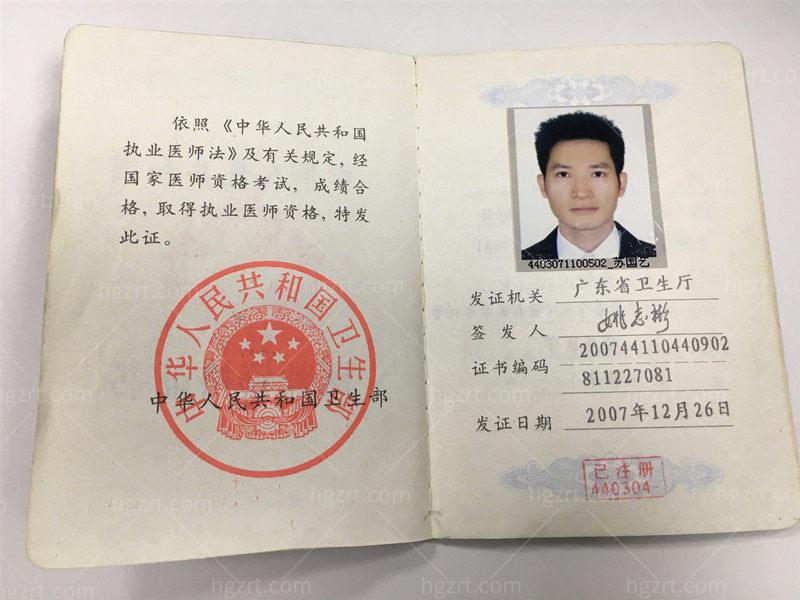 依照《中华人民共和国
执业医师法》及有关规定,经
国家医师资格考试,成绩合
格,取得执业医师资格,特发
此证。
中华人民共和国卫生部
中华人民共和国卫生部
4403071100502_苏国艺
发证机关 广东省卫生厅
签发人 姚志彬
证书编码 200744110440902
811227081
发证日期 2007年12月26日
已注册
440304
hgzrt.com